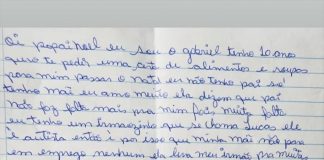 Oi papai noel eu sou o gabriel tenho 10 anos
quero te pedir uma cesta de alimentos e roupas
para mim passar o natal eu não tenho pai só
tenho mãe eu amo muito ela dizem que pai
não faz falta mais pra mim fais muita falta
eu tenho um irmaozinho que se chama Lucas ele
é autista entãos é por isso que minha mãe não para
em emprego nenhum ela leva meu irmão pra muitas